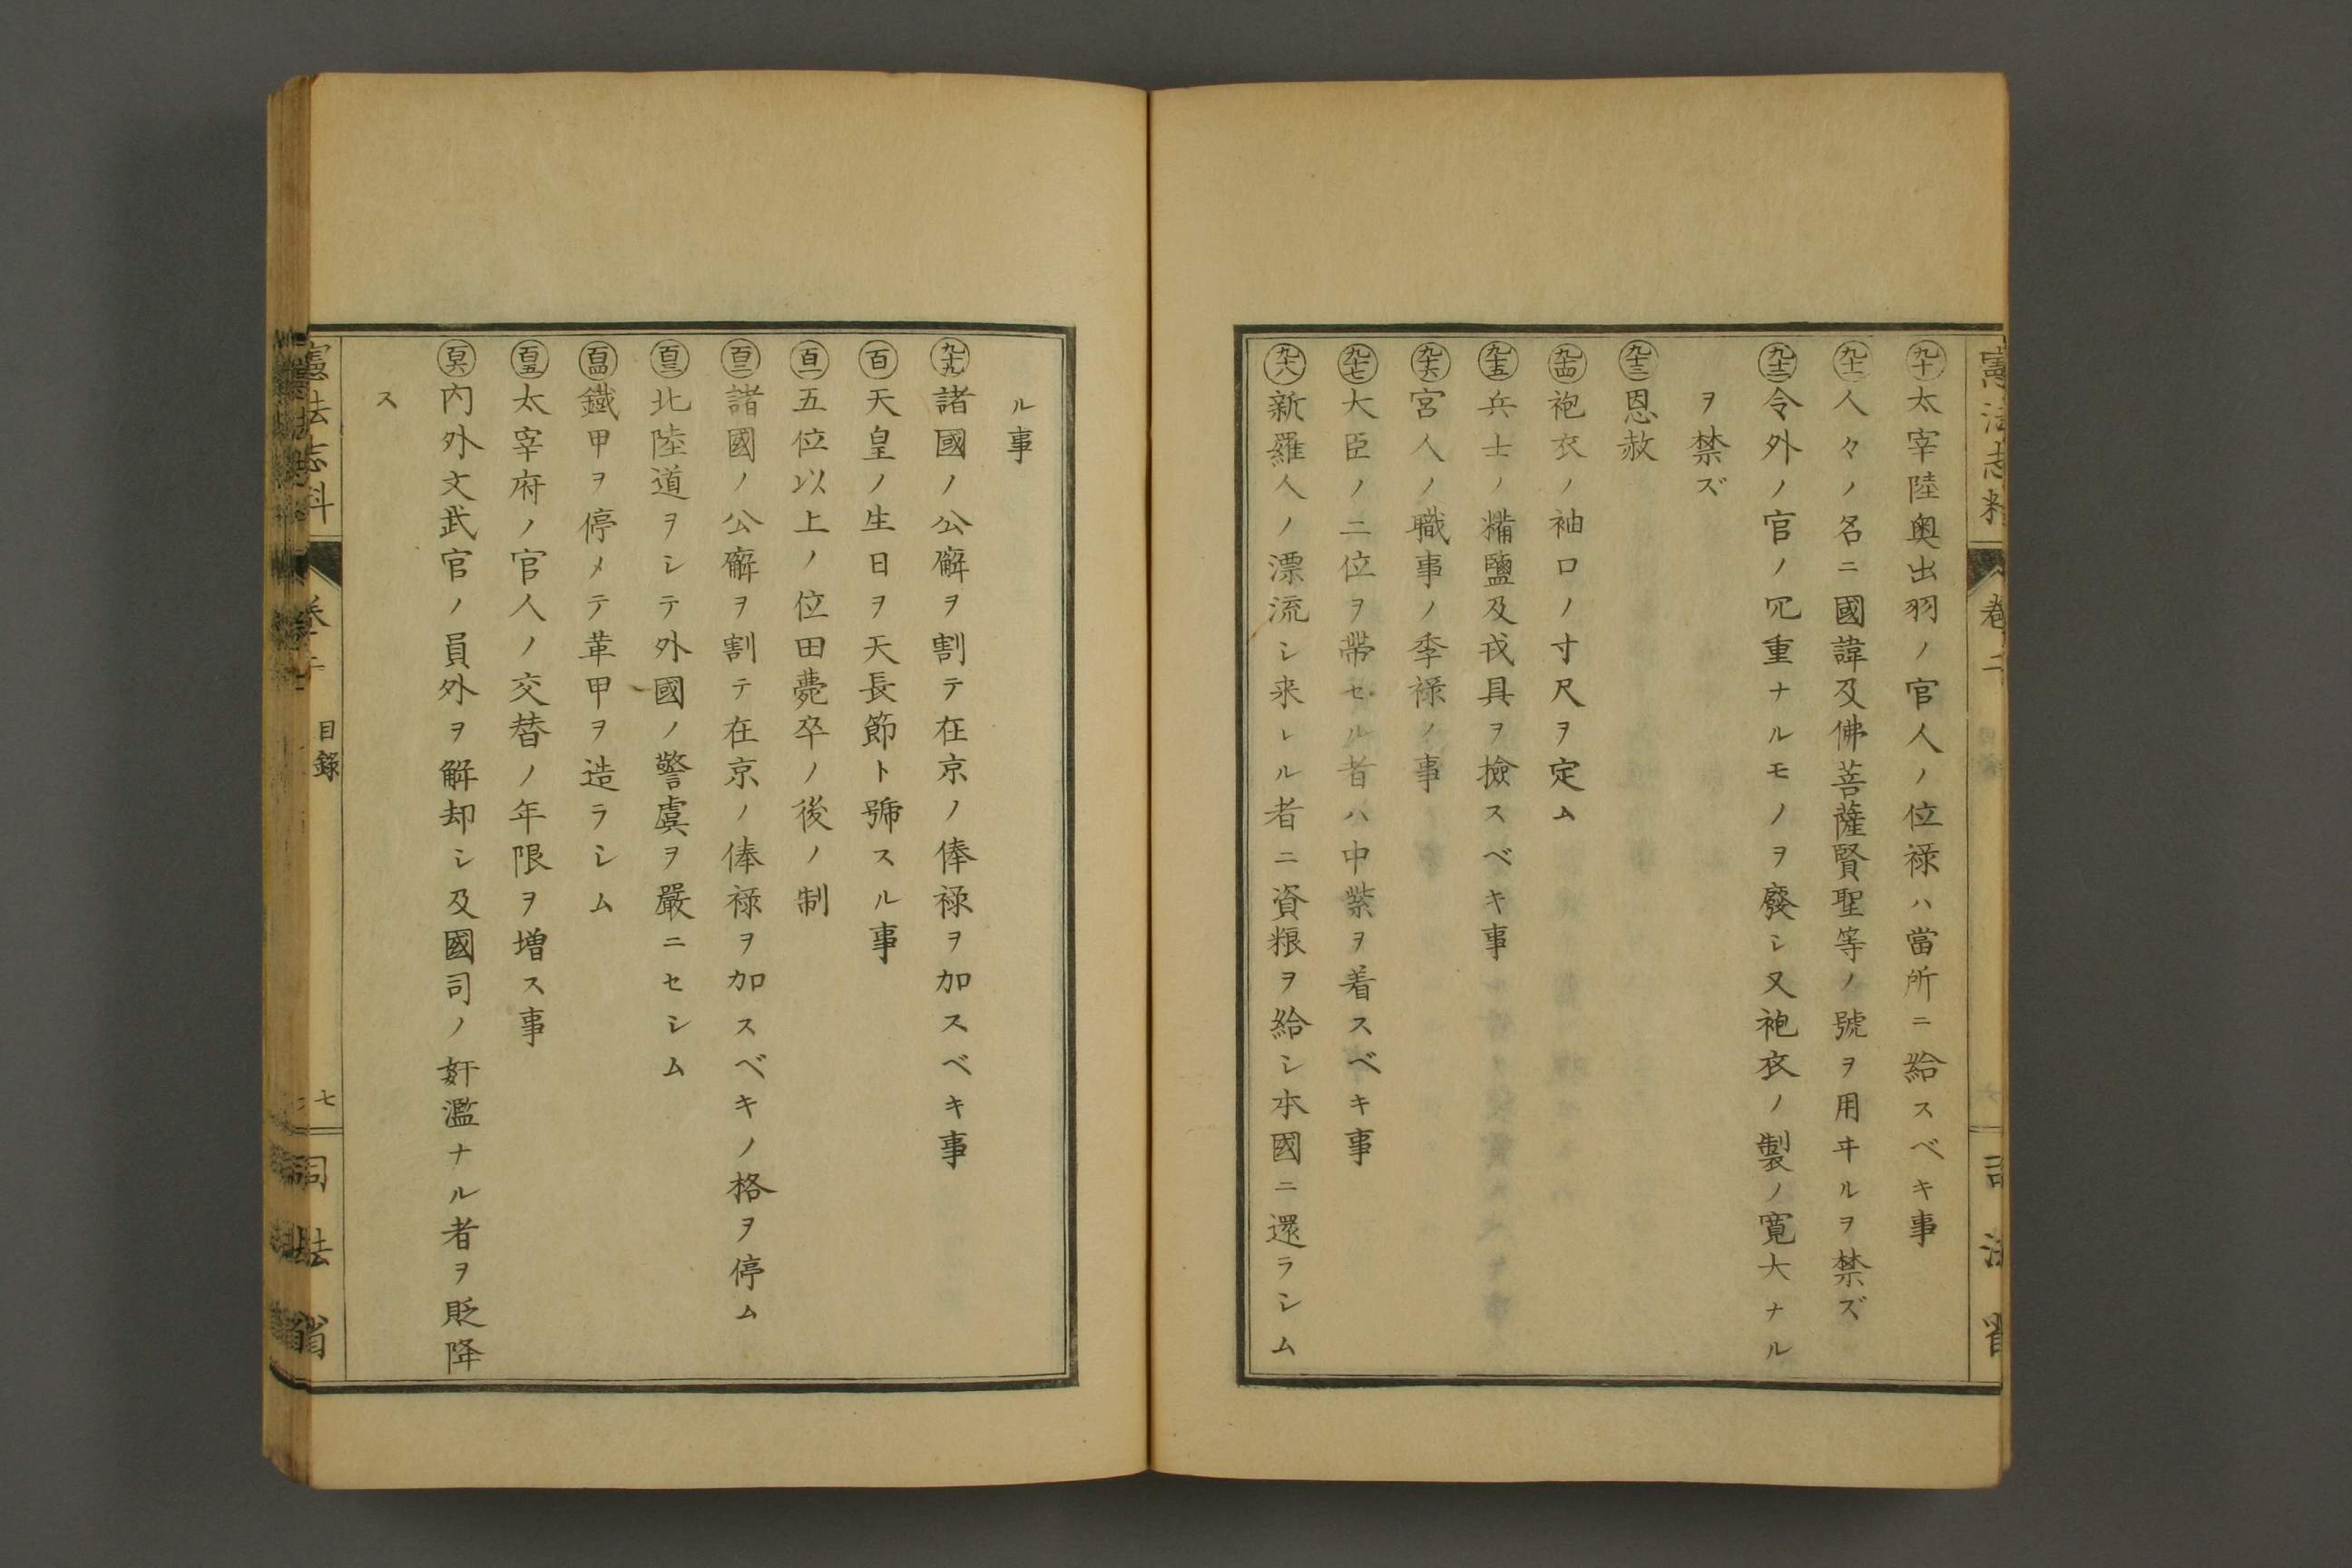 九十 太宰陸奥出羽ノ官人ノ位禄ハ當所ニ給スベキ事
九十一 人々ノ名ニ國諱及佛菩薩賢聖等ノ號ヲ用ヰルヲ禁ズ
九十二 令外ノ官ノ冗重ナルモノヲ廢シ又袍衣ノ製ノ寛大ナル
ヲ禁ズ
九十三 恩赦
九十四 袍衣ノ袖口ノ寸尺ヲ定ム
九十五 兵士ノ糒鹽及戎具ヲ撿スベキ事
九十六 宮人ノ職事ノ季禄ノ事
九十七 大臣ノ二位ヲ帶セル者ハ中紫ヲ着スベキ事
九十八 新羅人ノ漂流シ来レル者ニ資粮ヲ給シ本國ニ還ラシム
ル事
九十九 諸國ノ公廨ヲ割テ在京ノ俸禄ヲ加スベキ事
百 天皇ノ生日ヲ天長節ト號スル事
百一 五位以上ノ位田薨卒ノ後ノ制
百二 諸國ノ公廨ヲ割テ在京ノ俸禄ヲ加スベキノ格ヲ停ム
百三 北陸道ヲシテ外國ノ警虞ヲ嚴ニセシム
百四 鐵甲ヲ停メテ革甲ヲ造ラシム
百五 太宰府ノ官人ノ交替ノ年限ヲ増ス事
百六 内外文武官ノ員外ヲ解却シ及國司ノ奸濫ナル者ヲ貶降
ス
憲法志料 卷二 目錄 七 司法省